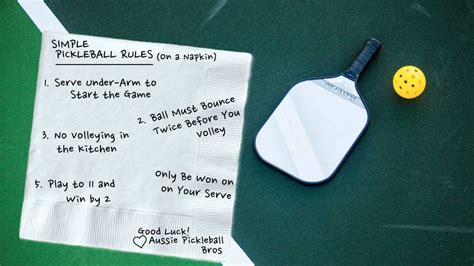 SIMPLE
PICKLEBALL RULES (on a Napkin)
1. Serve Under-Arm to
Start the Game
2. Ball Must Bounce
Twice Before You
Volley
3. No Volleying in
the Kitchen
only Be Won on
on Your Serve
5. Play to 11 and
Win by 2
Good Luck!
Aussie Pickleball
Bros